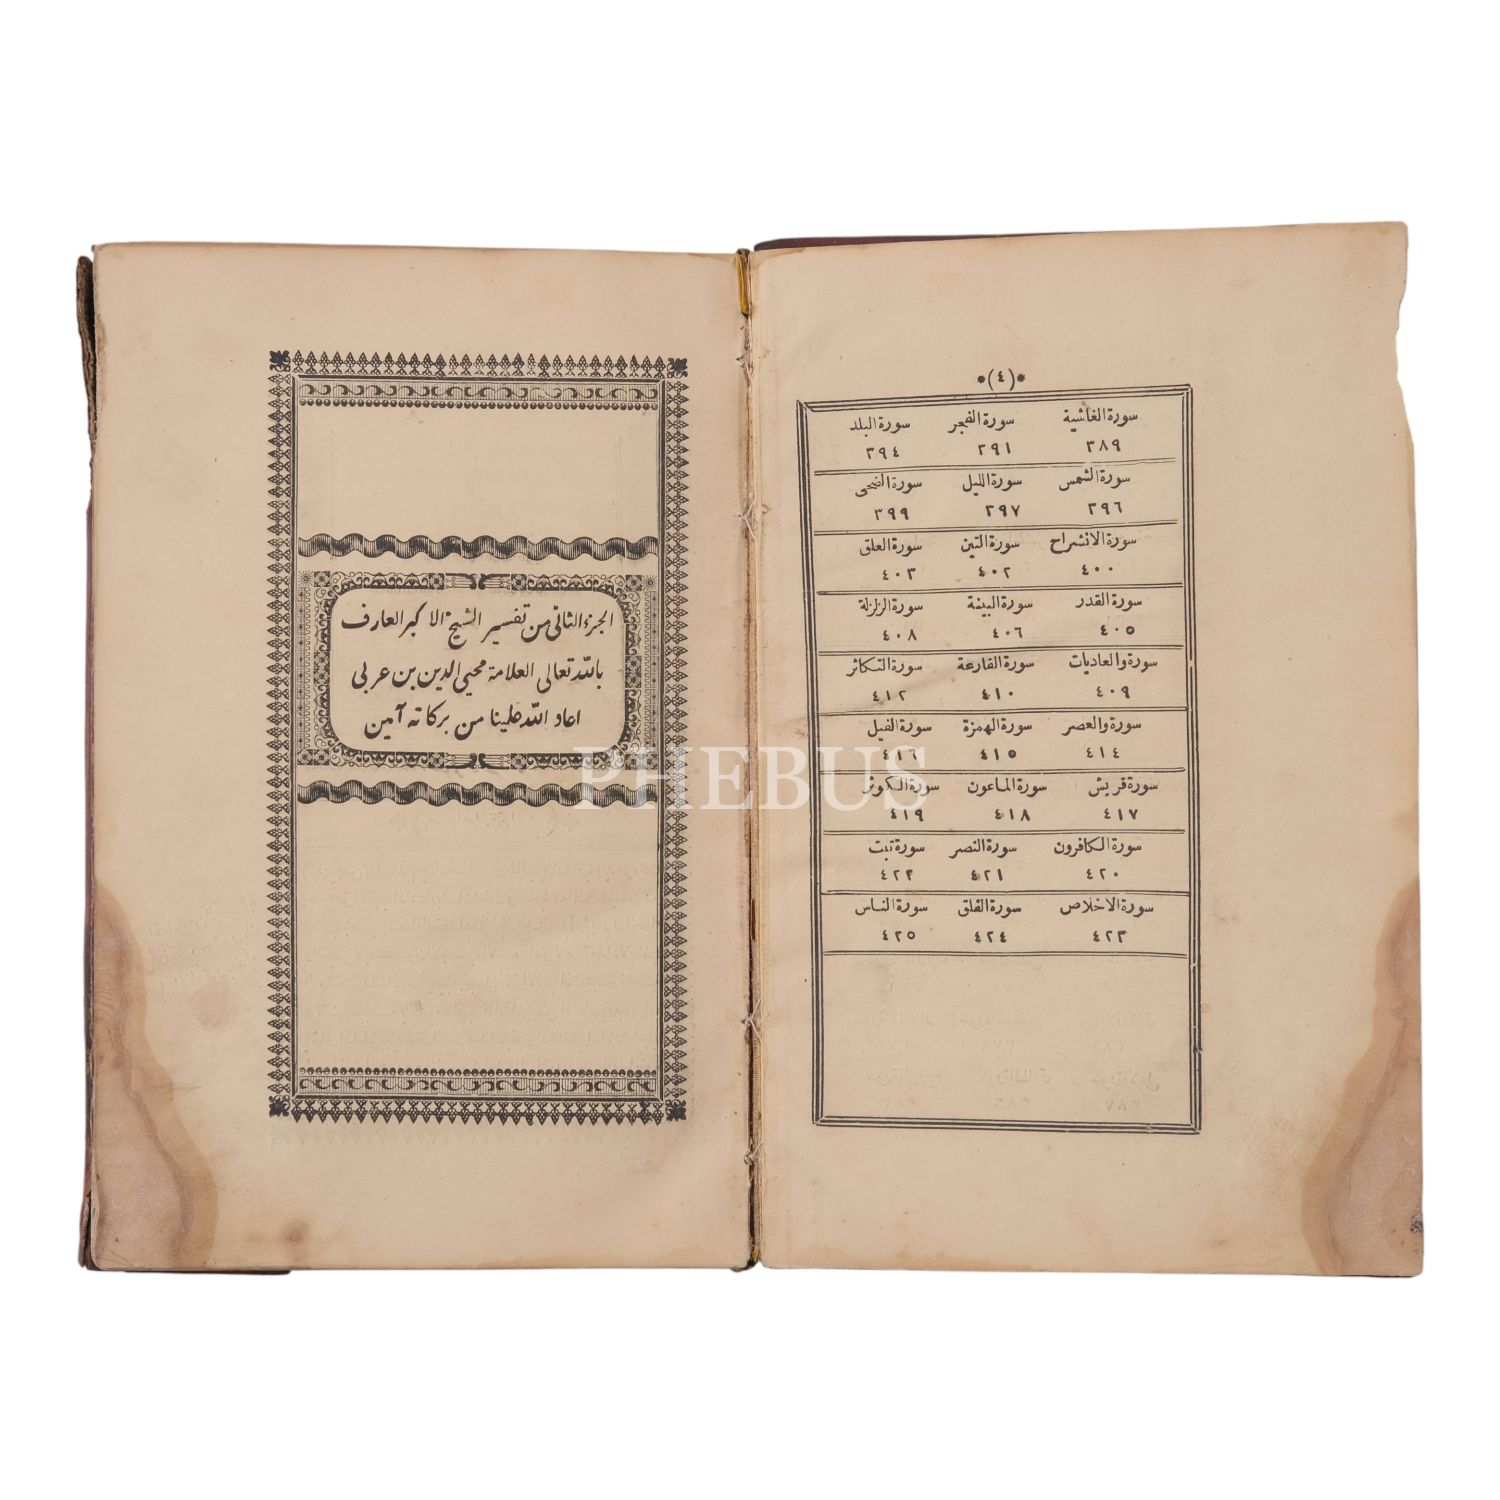 *(٤)*
سورة الغاشية سورة الفجر سورة البلد
٣٨٩ ٣٩١ ٣٩٤
سورة الشمس سورة الليل سورة الضحى
٣٩٦ ٣٩٧ ٣٩٩
سورة الانشراح سورة التين سورة العلق
٤٠٠ ٤٠٢ ٤٠٣
سورة القدر سورة البينة سورة الزلزلة
٤٠٥ ٤٠٦ ٤٠٨
سورة والعاديات سورة القارعة سورة التكاثر
٤٠٩ ٤١٠ ٤١٢
سورة والعصر سورة الهمزة سورة الفيل
٤١٤ ٤١٥ ٤١٦
سورة قريش سورة الماعون سورة الكوثر
٤١٧ ٤١٨ ٤١٩
سورة الكافرون سورة النصر سورة تبت
٤٢٠ ٤٢١ ٤٢٢
سورة الاخلاص سورة الفلق سورة الناس
٤٢٣ ٤٢٤ ٤٢٥
الجزء الثانى من تفسير الشيخ الاكبر العارف
بالله تعالى العلامة محيى الدين بن عربى
اعاد الله علينا من بركاته آمين
PHEBUS